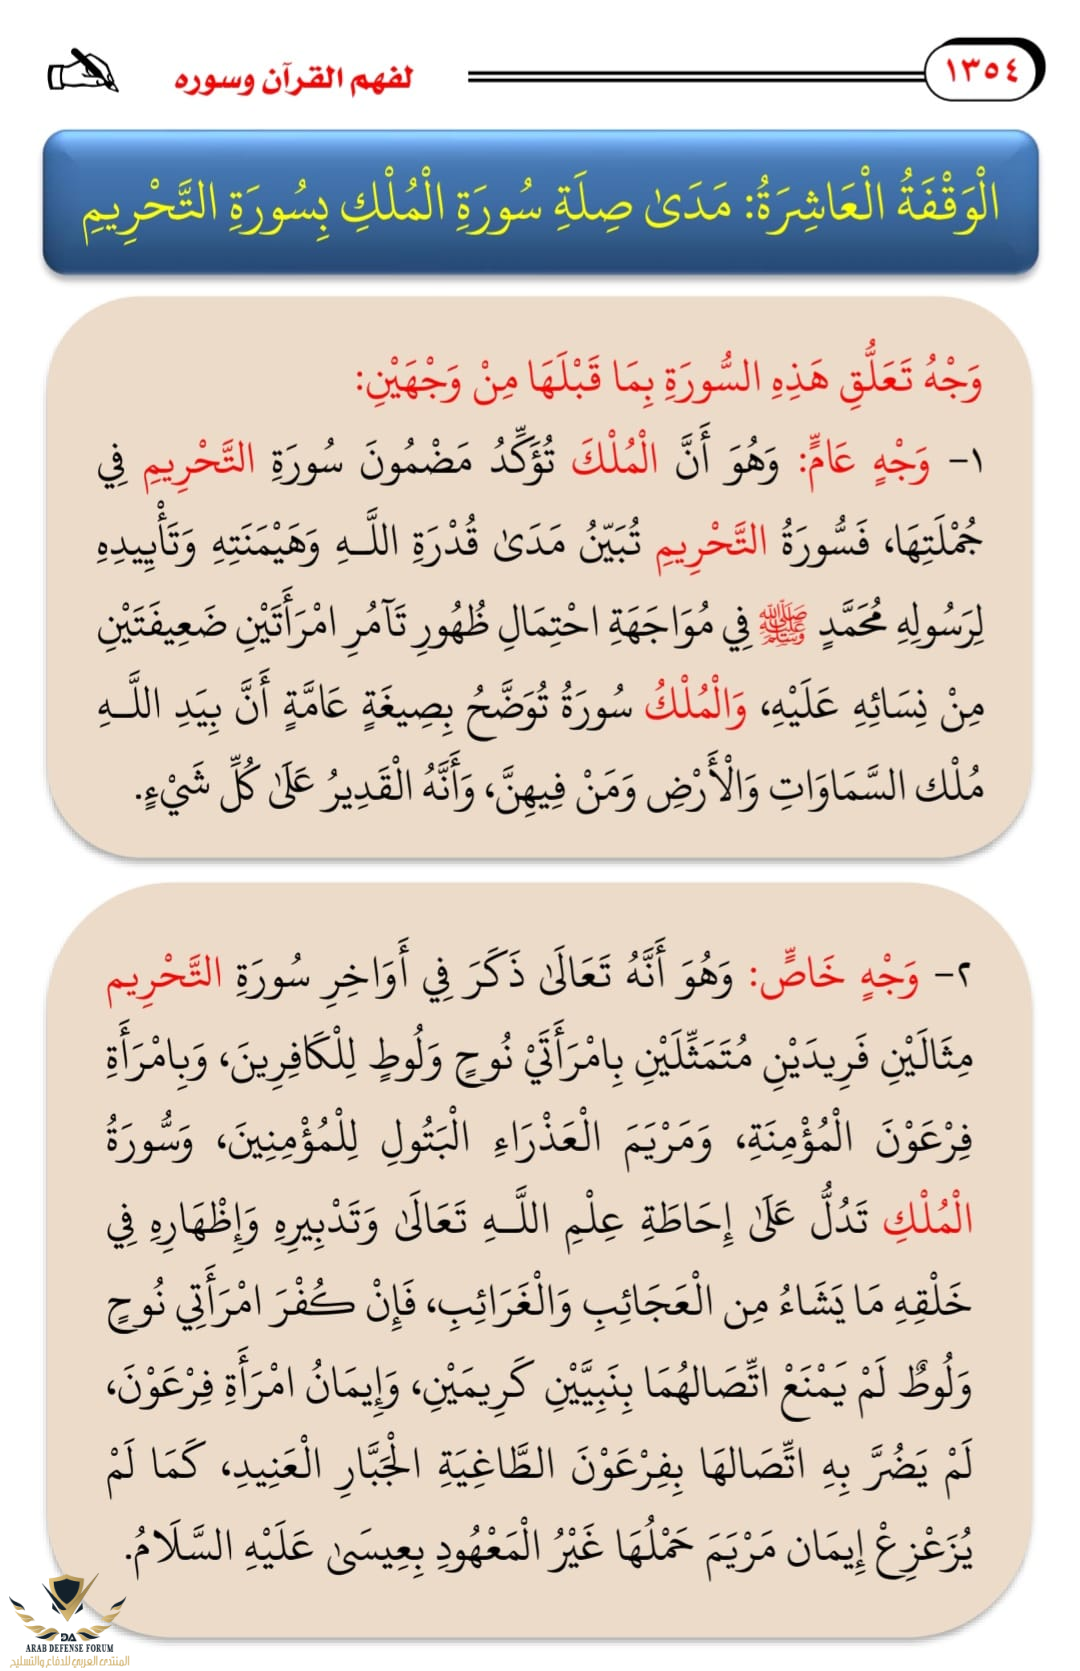 ١٣٥٤
لفهم القرآن وسوره
الْوَقْفَةُ الْعَاشِرَةُ: مَدَىٰ صِلَةِ سُورَةِ الْمُلْكِ بِسُورَةِ التَّحْرِيمِ
وَجْهُ تَعَلُّقِ هَذِهِ السُّورَةِ بِمَا قَبْلَهَا مِنْ وَجْهَيْنِ:
١- وَجْهٍ عَامٍّ: وَهُوَ أَنَّ الْمُلْكَ تُؤَكِّدُ مَضْمُونَ سُورَةِ التَّحْرِيمِ فِي
جُمْلَتِهَا، فَسُّورَةُ التَّحْرِيمِ تُبَيّنُ مَدَىٰ قُدْرَةِ اللَّـهِ وَهَيْمَنَتِهِ وَتَأْيِيدِهِ
لِرَسُولِهِ مُحَمَّدٍ ﷺ فِي مُوَاجَهَةِ احْتِمَالِ ظُهُورِ تَآمُرِ امْرَأَتَيْنِ ضَعِيفَتَيْنِ
مِنْ نِسَائِهِ عَلَيْهِ، وَالْمُلْكُ سُورَةُ تُوَضَّحُ بِصِيغَةٍ عَامَّةٍ أَنَّ بِيَدِ اللَّـهِ
مُلْك السَّمَاوَاتِ وَالْأَرْضِ وَمَنْ فِيهِنَّ، وَأَنَّهُ الْقَدِيرُ عَلَىٰ كُلِّ شَيْءٍ.
٢- وَجْهٍ خَاصٍّ: وَهُوَ أَنَّهُ تَعَالَىٰ ذَكَرَ فِي أَوَاخِرِ سُورَةِ التَّحْرِيم
مِثَالَيْنِ فَرِيدَيْنِ مُتَمَثِّلَيْنِ بِامْرَأَتَيْ نُوحٍ وَلُوطٍ لِلْكَافِرِينَ، وَبِامْرَأَةِ
فِرْعَوْنَ الْمُؤْمِنَةِ، وَمَرْيَمَ الْعَذْرَاءِ الْبَتُولِ لِلْمُؤْمِنِينَ، وَسُّورَةُ
الْمُلْكِ تَدُلُّ عَلَىٰ إِحَاطَةِ عِلْمِ اللَّـهِ تَعَالَىٰ وَتَدْبِيرِهِ وَإِظْهَارِهِ فِي
خَلْقِهِ مَا يَشَاءُ مِن الْعَجَائِبِ وَالْغَرَائِبِ، فَإِنْ كُفْرَ امْرَأَتِي نُوحٍ
وَلُوطٌ لَمْ يَمْنَعْ اتِّصَالهُمَا بِنَبِيَّيْنِ كَرِيمَيْنِ، وَإِيمَانُ امْرَأَةِ فِرْعَوْنَ،
لَمْ يَضُرَّ بِهِ اتِّصَالهَا بِفِرْعَوْنَ الطَّاغِيَةِ الْجَبَّارِ الْعَنِيدِ، كَمَا لَمْ
يُزَعْزِعْ إِيمَان مَرْيَمَ حَمْلُهَا غَيْرُ الْمَعْهُودِ بِعِيسَىٰ عَلَيْهِ السَّلَامُ.
DA
ARAB DEFENSE FORUM
المنتدى العربي للدفاع والتسليح